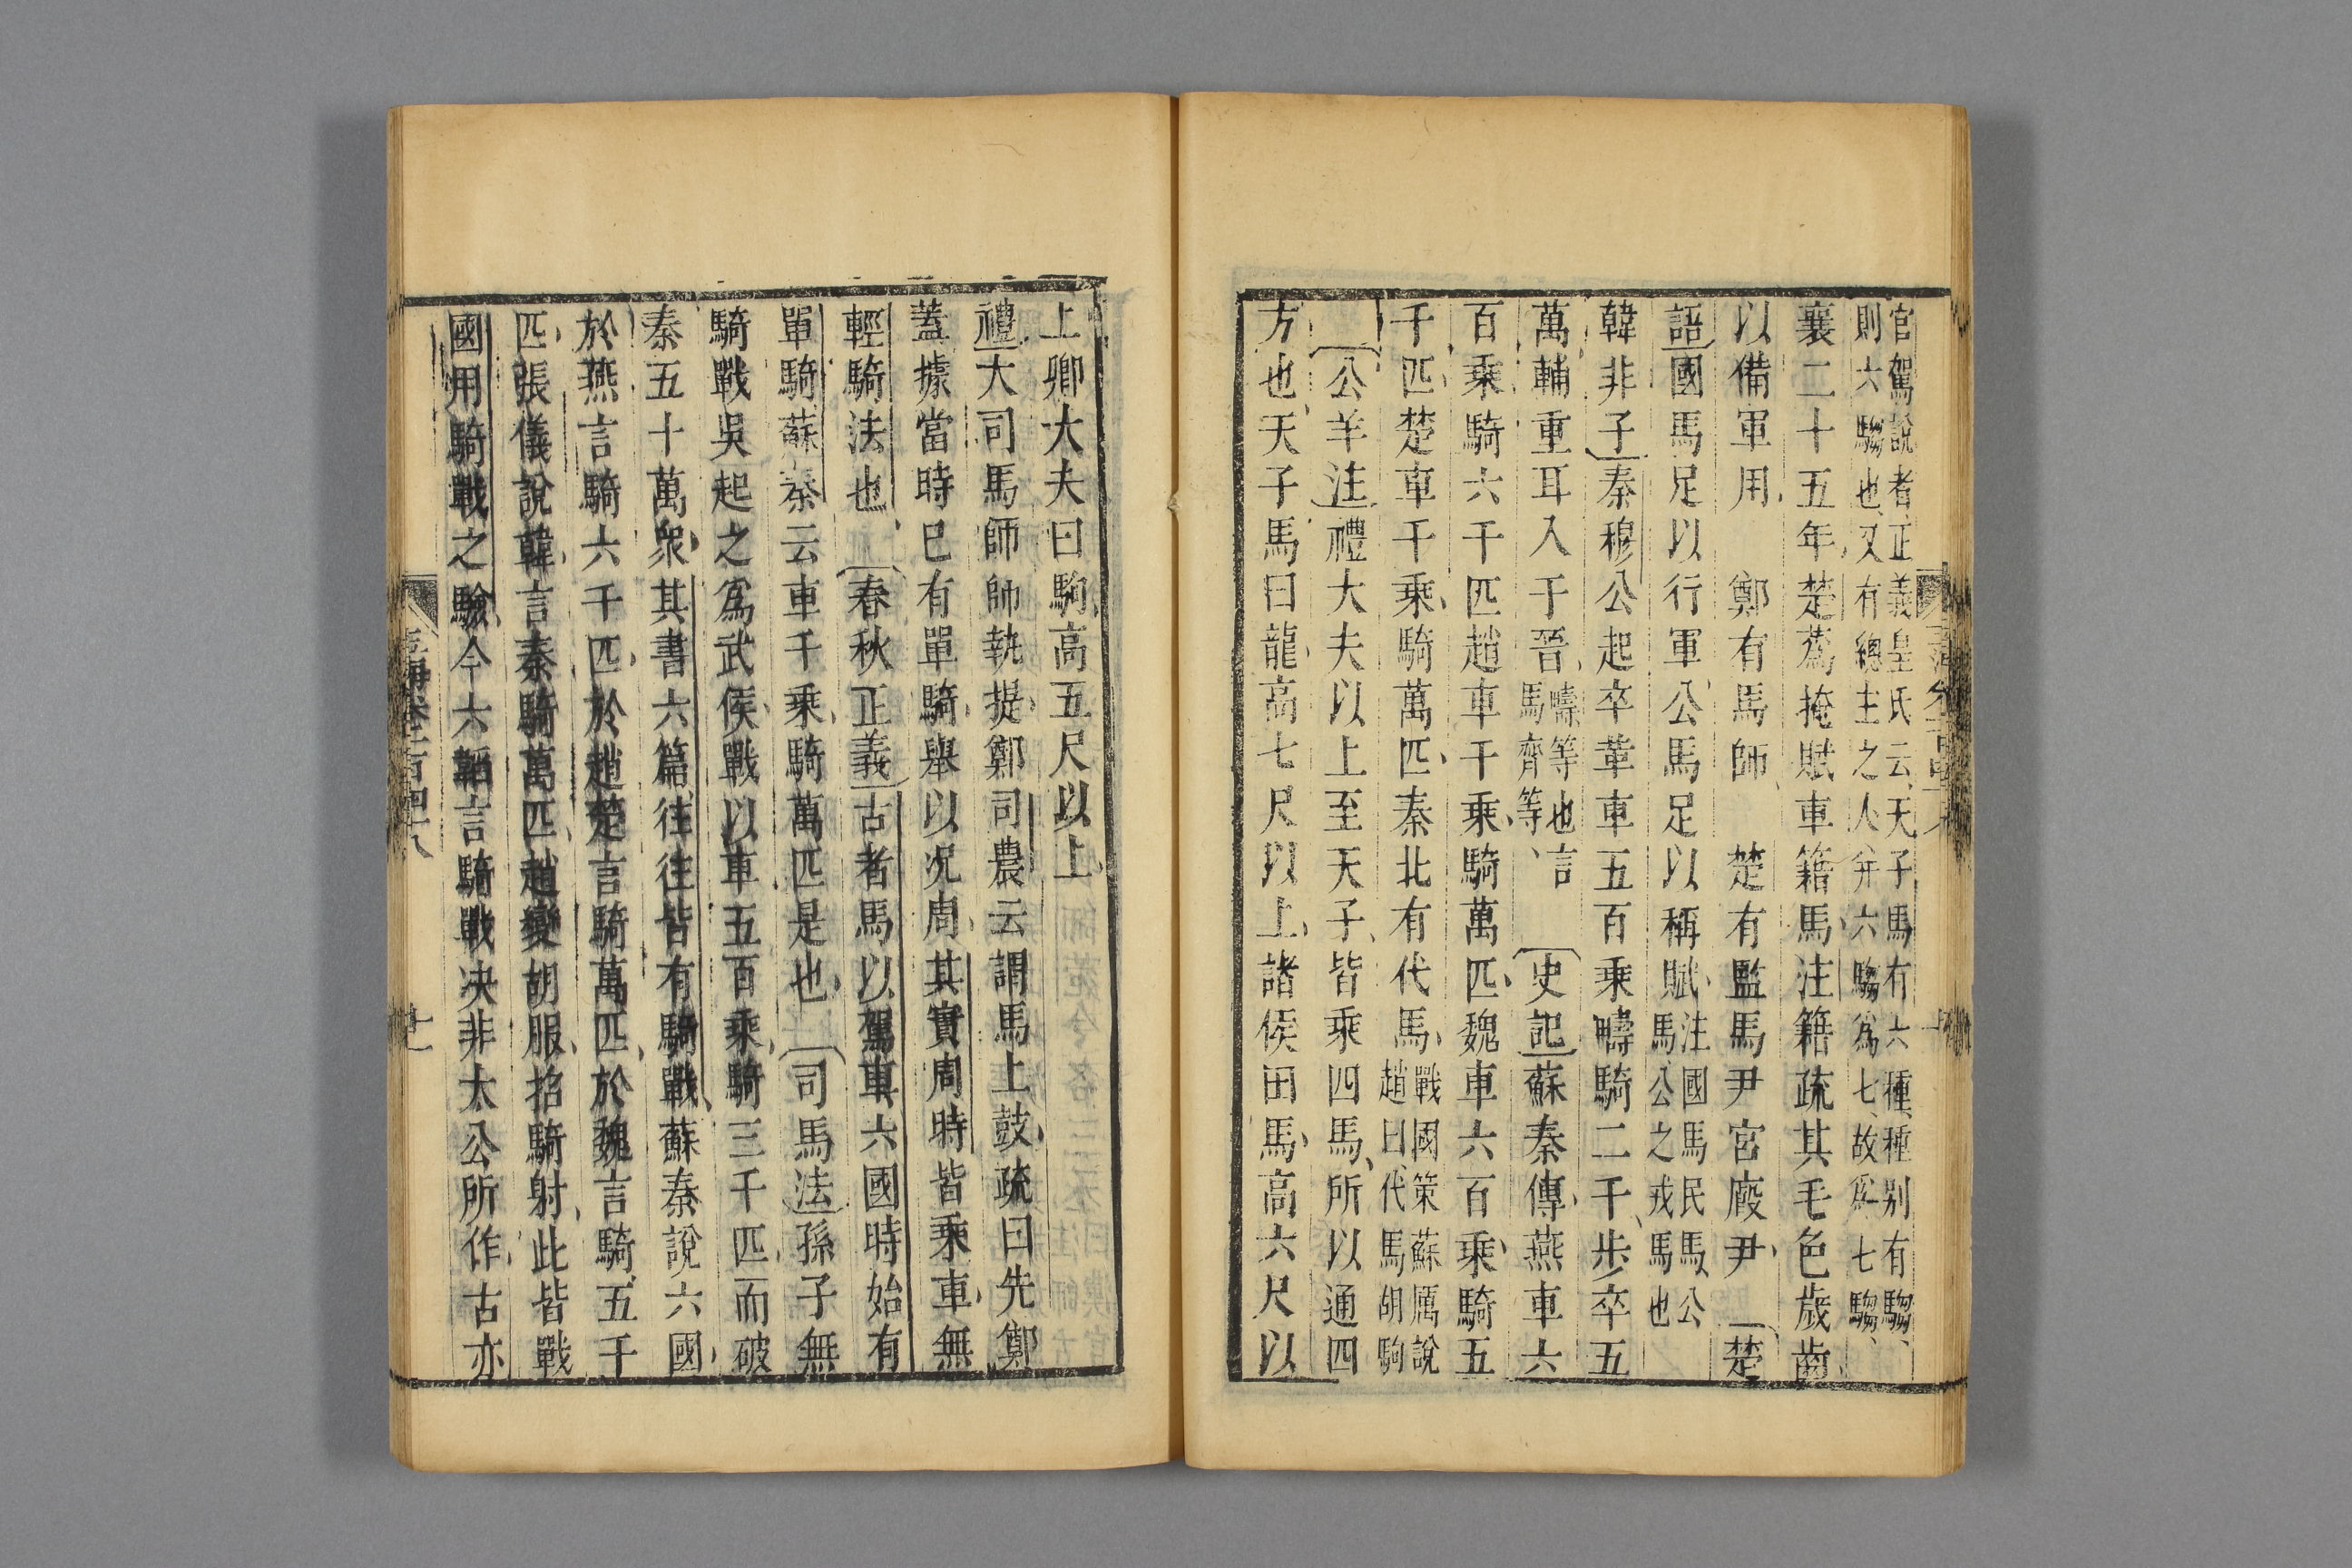 官駕說者正義皇氏云天子馬有六種種别有騶
則六騶也又有總主之人并六騶爲七故爲七騶
襄二十五年楚蒍掩賦車籍馬注籍疏其毛色歲齒
以備軍用　鄭有馬師　楚有監馬尹宮廄尹　楚
語國馬足以行軍公馬足以稱賦注國馬民馬公馬公之戎馬也
韓非子秦穆公起卒革車五百乘疇騎二千步卒五
萬輔重耳入于晉疇等也言馬齊等　史記蘇秦傳燕車六
百乘騎六千匹趙車千乘騎萬匹魏車六百乘騎五
千匹楚車千乘騎萬匹秦北有代馬戰國策蘇厲說趙曰代馬胡駒
公羊注禮大夫以上至天子皆乘四馬所以通四
方也天子馬曰龍高七尺以上諸侯曰馬高六尺以
上卿大夫曰駒高五尺以上
禮大司馬師帥執提鄭司農云謂馬上鼓疏曰先鄭
蓋據當時已有單騎舉以况周其實周時皆乘車無
輕騎法也　春秋正義古者馬以駕車六國時始有
單騎蘇秦云車千乘騎萬匹是也　司馬法孫子無
騎戰吳起之爲武侯戰以車五百乘騎三千匹而破
秦五十萬衆其書六篇往往皆有騎戰蘇秦說六國
於燕言騎六千匹於趙楚言騎萬匹於魏言騎五千
匹張儀說韓言秦騎萬匹趙變胡服招騎射此皆戰
國用騎戰之驗今六韜言騎戰决非太公所作古亦
玉海卷一百四十八　廿一